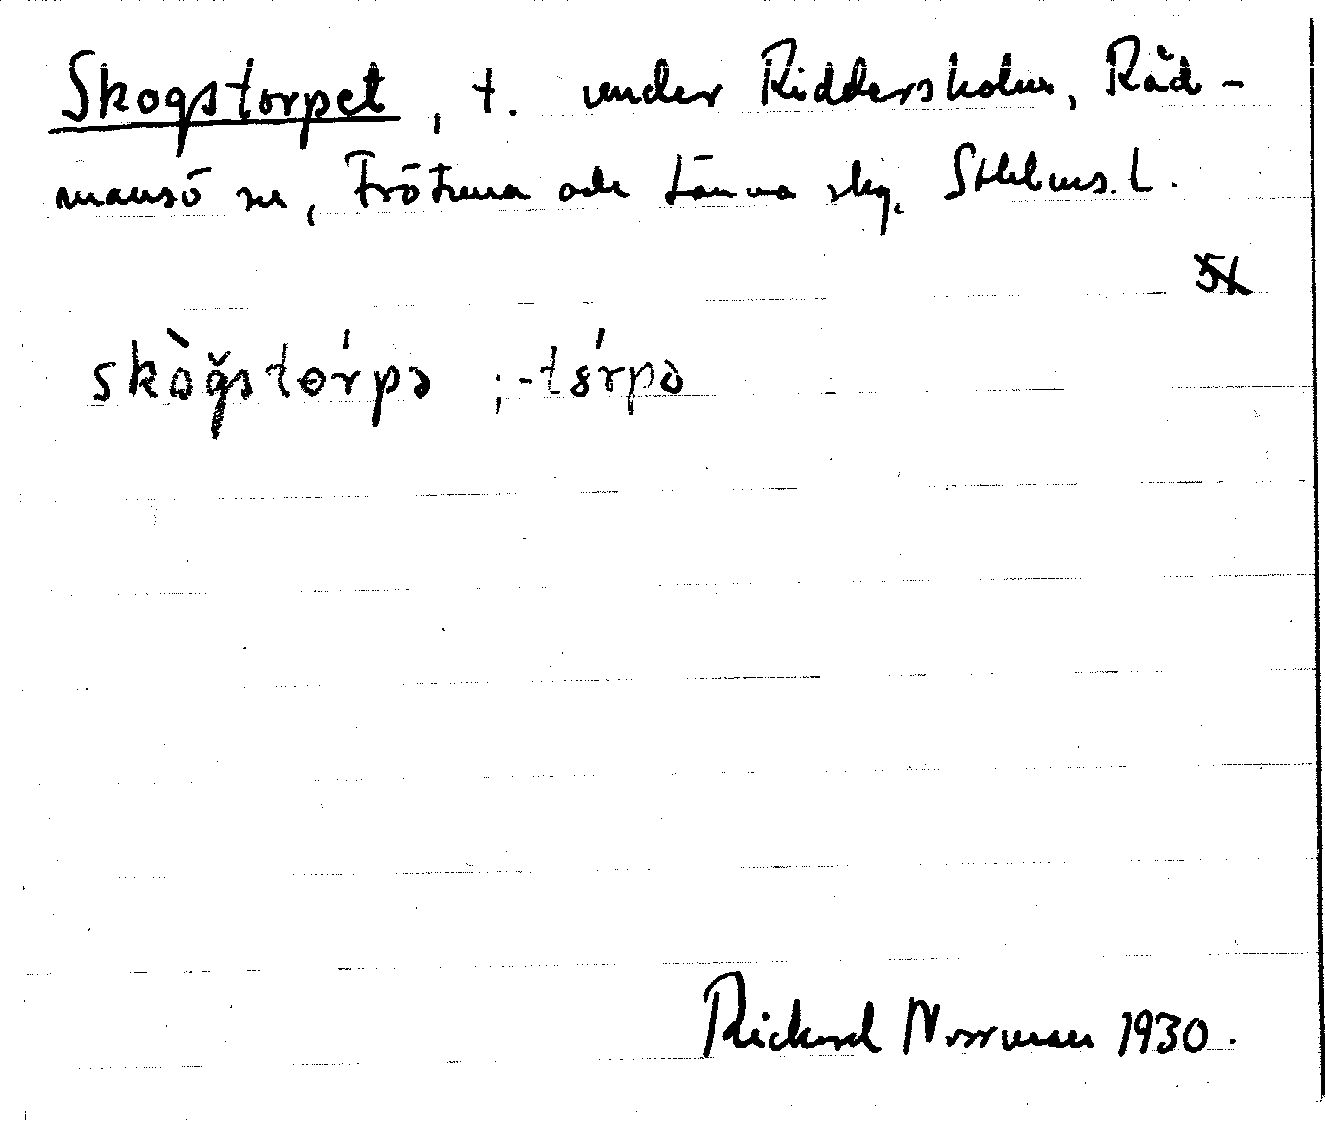 Skogstorpet, t. under Riddersholm, Råd-
mansö sn, Frötuna och Länna skg. Sthlms. L.
skòğstorpə ; -tɵrpə
Rickard Norrman 1930.